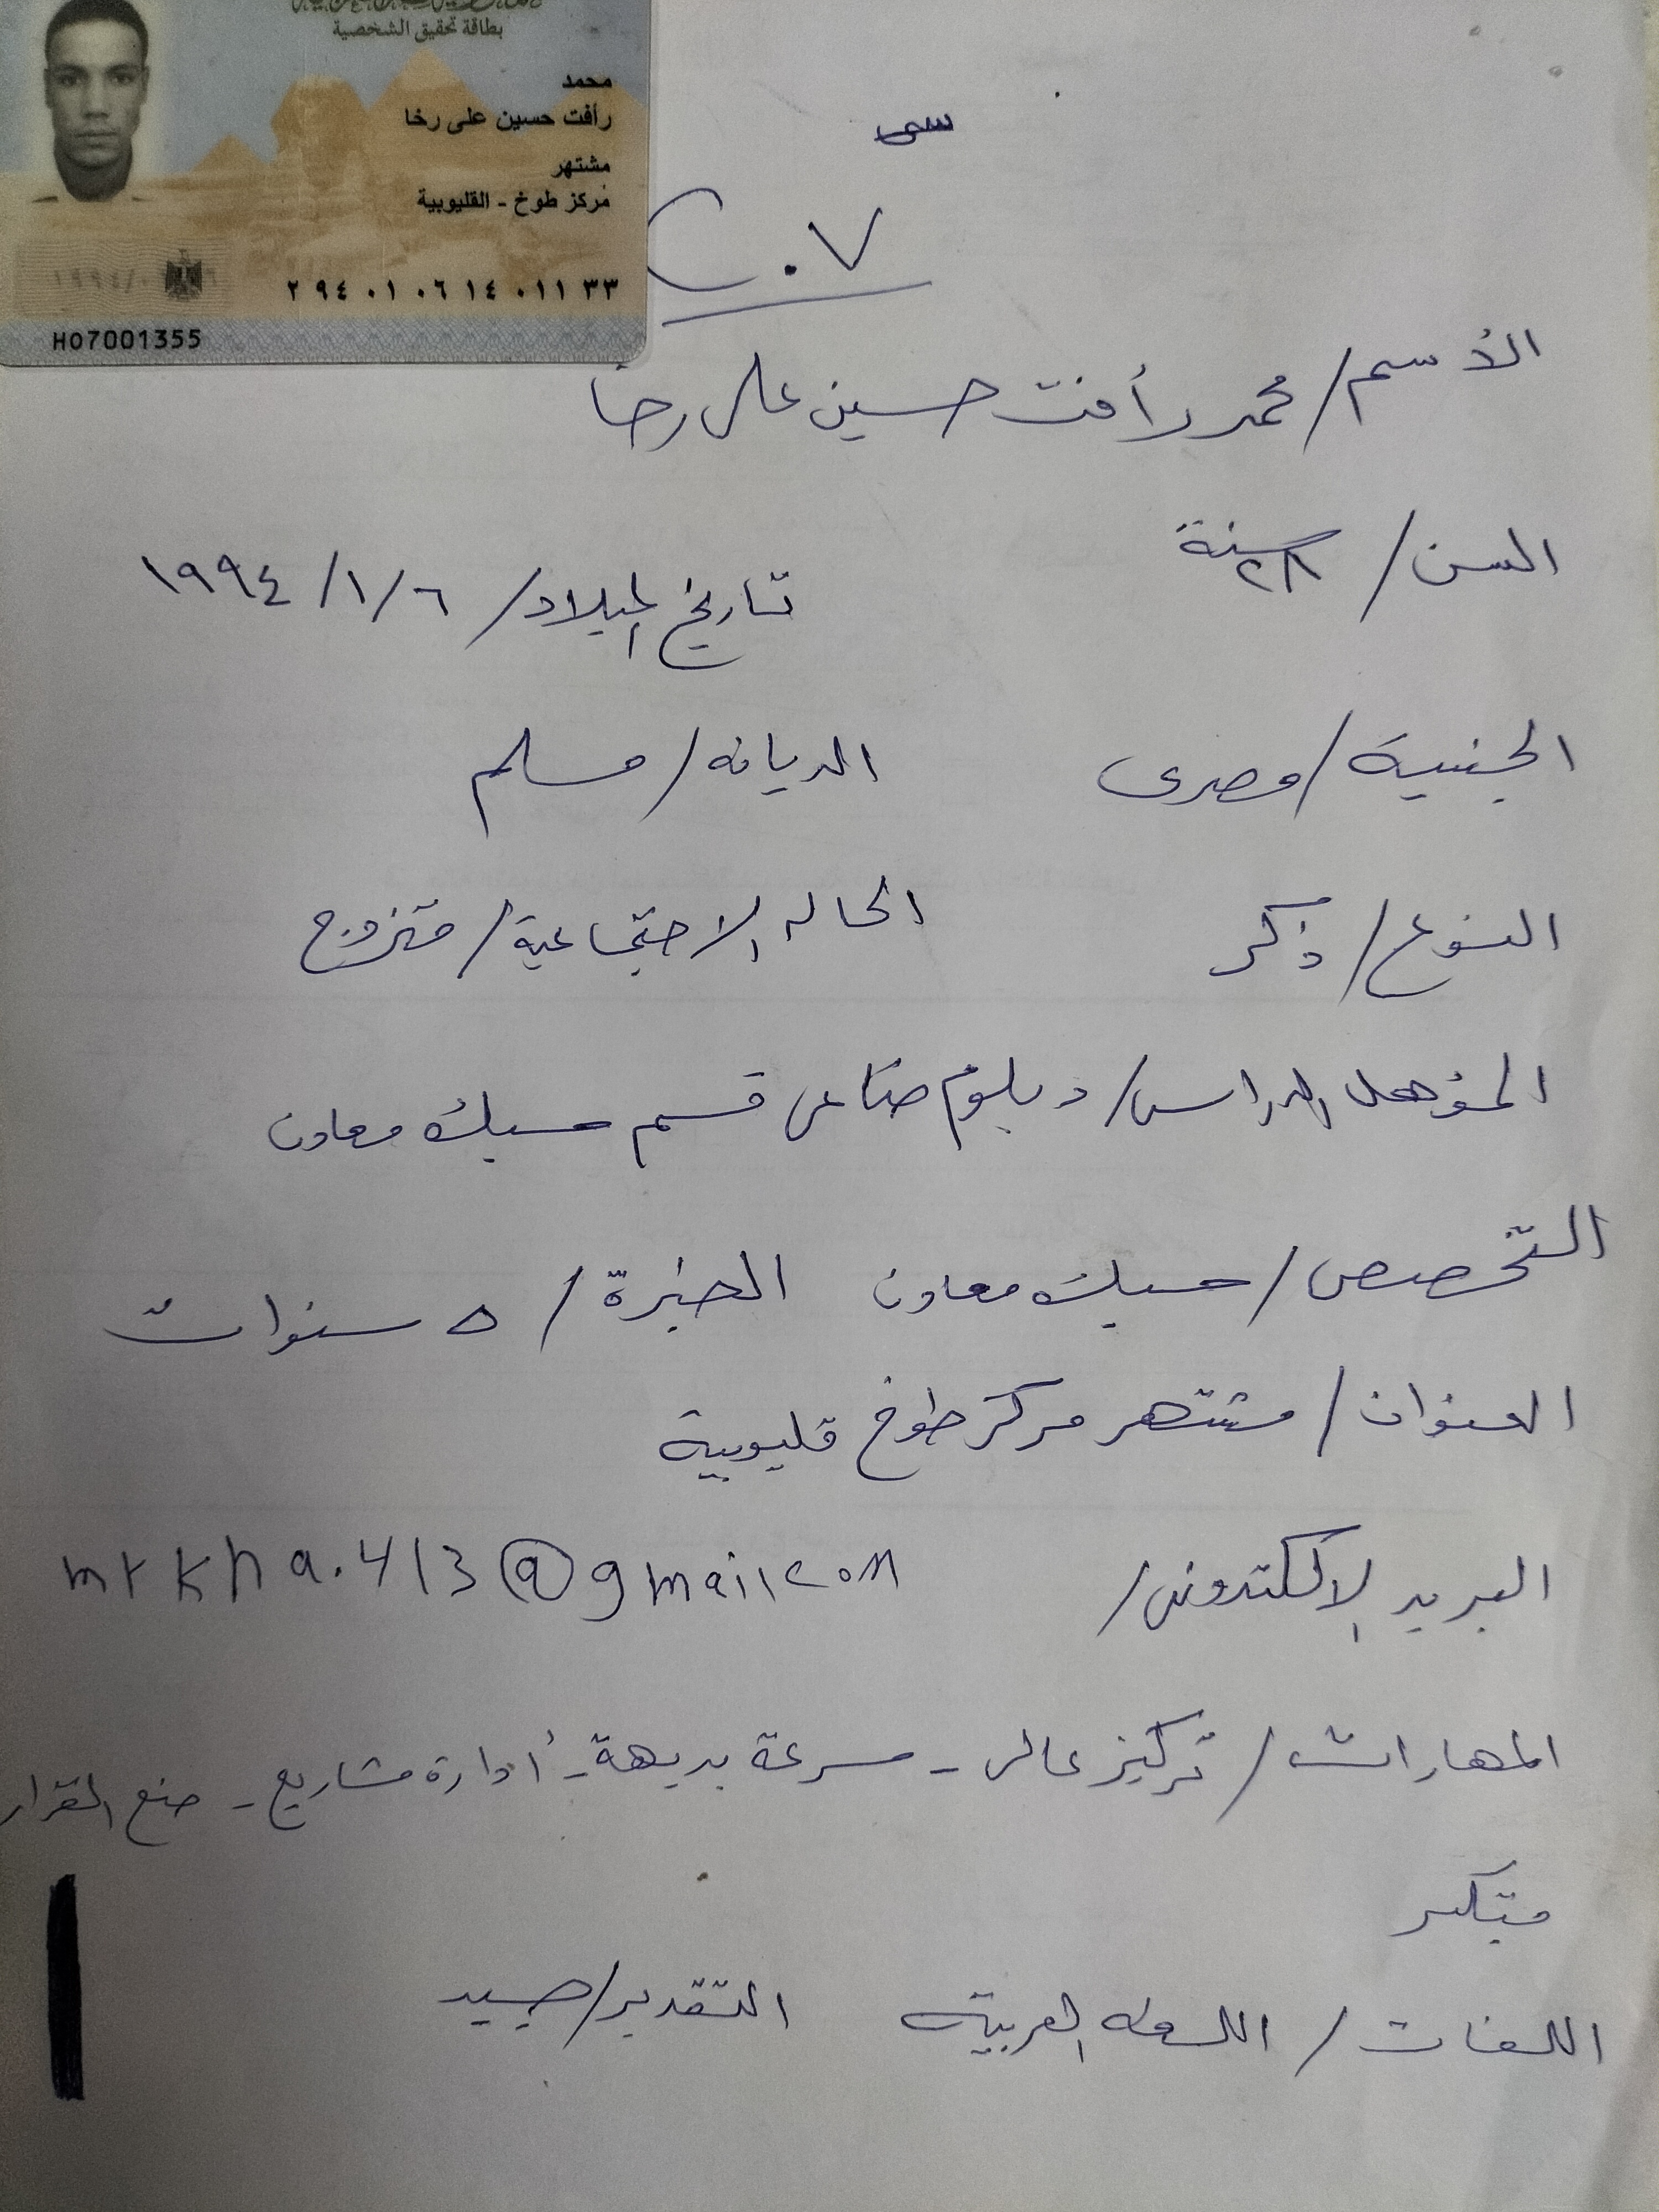 بطاقة تحقيق الشخصية
محمد
رأفت حسين على رخا
مشتهر
مركز طوخ - القليوبية
٢ ٩٤ ٠١ ٠٦ ١٤ ٠١١ ٣٣
H07001355
سى
C.V
الأسم / محمد رأفت حسين على رخا
السن / ٢٨ سنة
تاريخ الميلاد / ٦ / ١ / ١٩٩٤
الجنسية / مصرى
الديانه / مسلم
النوع / ذكر
الحاله الاجتماعية / متزوج
المؤهل الدراسى / دبلوم صناعى قسم سبك معادن
التخصص / سبك معادن الخبرة / ٥ سنوات
العنوان / مشتهر مركز طوخ قليوبية
البريد الالكترونى / mrkha.413@gmailcom
المهارات / تركيز عالى - سرعة بديهة - أدارة مشاريع - صنع القرار
مبتكر
اللغات / اللغه العربية التقدير / جيد